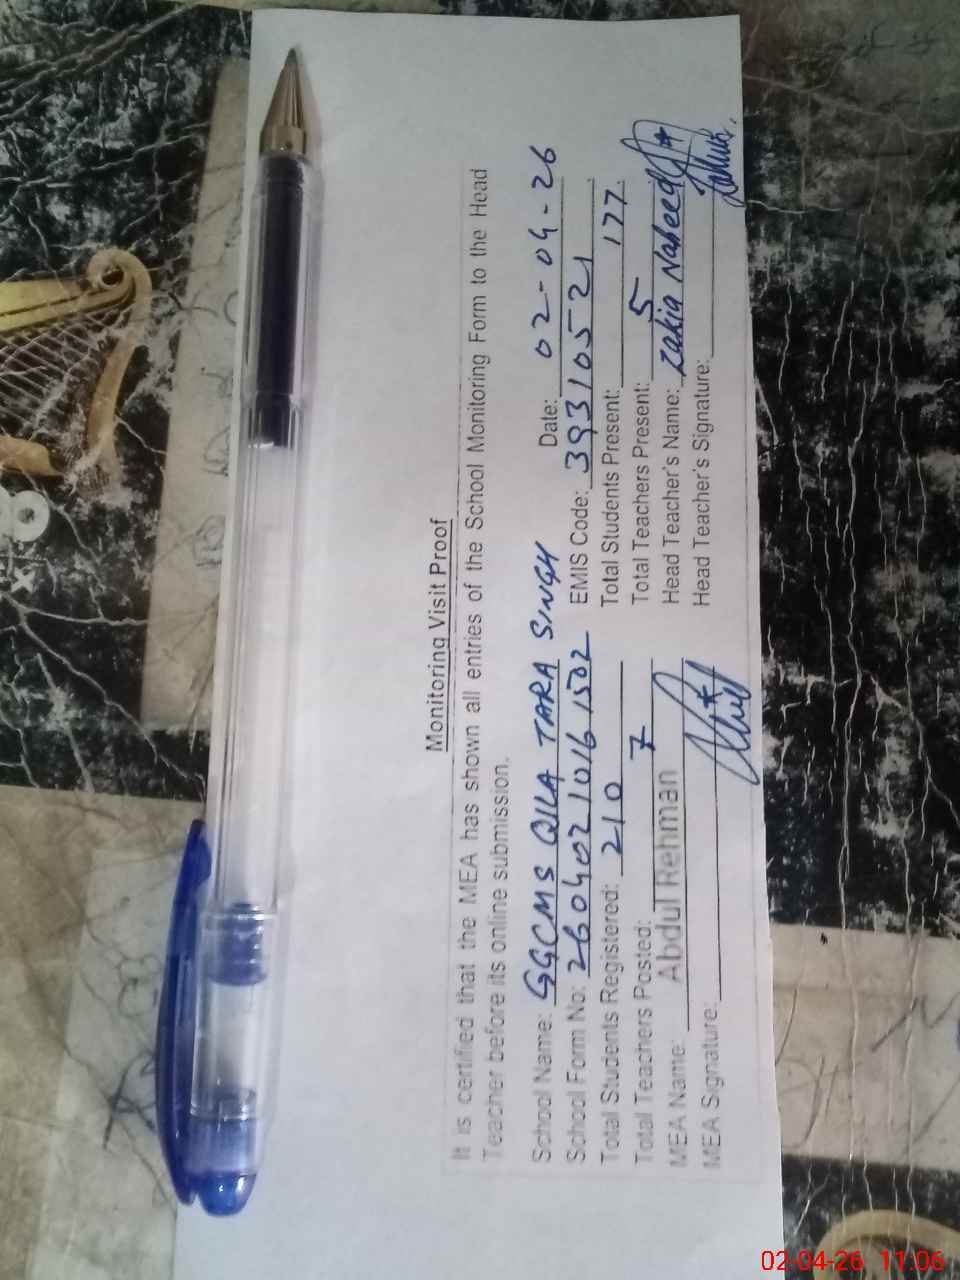 Monitoring Visit Proof
It is certified that the MEA has shown all entries of the School Monitoring Form to the Head
Teacher before its online submission.
School Name: GGCMS QILA TARA SINGH Date: 02-04-26
School Form No: 26040210161502 EMIS Code: 39310521
Total Students Registered: 210 Total Students Present: 177
Total Teachers Posted: 7 Total Teachers Present: 5
MEA Name: Abdul Rehman Head Teacher's Name: Zakia Naheed
MEA Signature: Head Teacher's Signature:
02-04-26 11:06